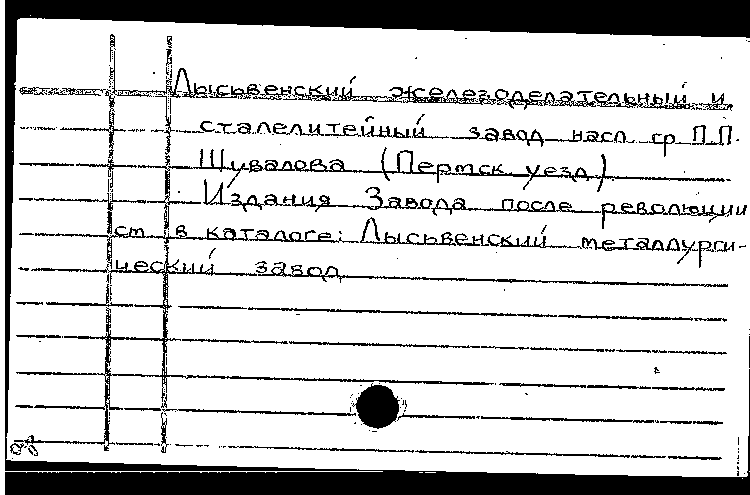 Лысьвенский железоделательный и
сталелитейный завод насл гр П.П.
Шувалова (Пермск уезд)
Издания Завода после революции
см. в каталоге: Лысьвенский металлурги-
ческий завод